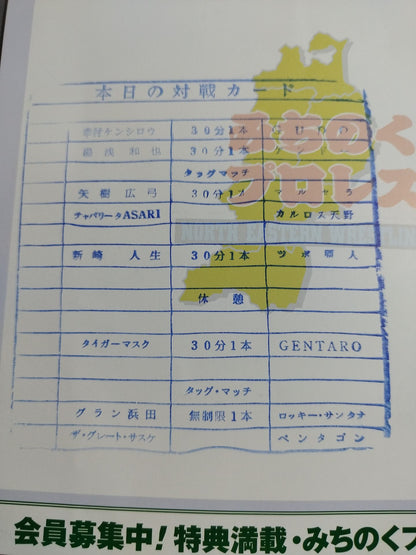 本日の対戦カード
30分1本
湯浅和也 30分1本
タッグマッチ
矢樹広弓 30分1本 マルセラ
チャパリータASARI カルロス天野
新崎 人生 30分1本 ツボ職人
休憩
タイガーマスク 30分1本 GENTARO
タッグ・マッチ
グラン浜田 無制限1本 ロッキー・サンタナ
ザ・グレート・サスケ ペンタゴン
みちのく
プロレス
会員募集中!特典満載・みちのくプ